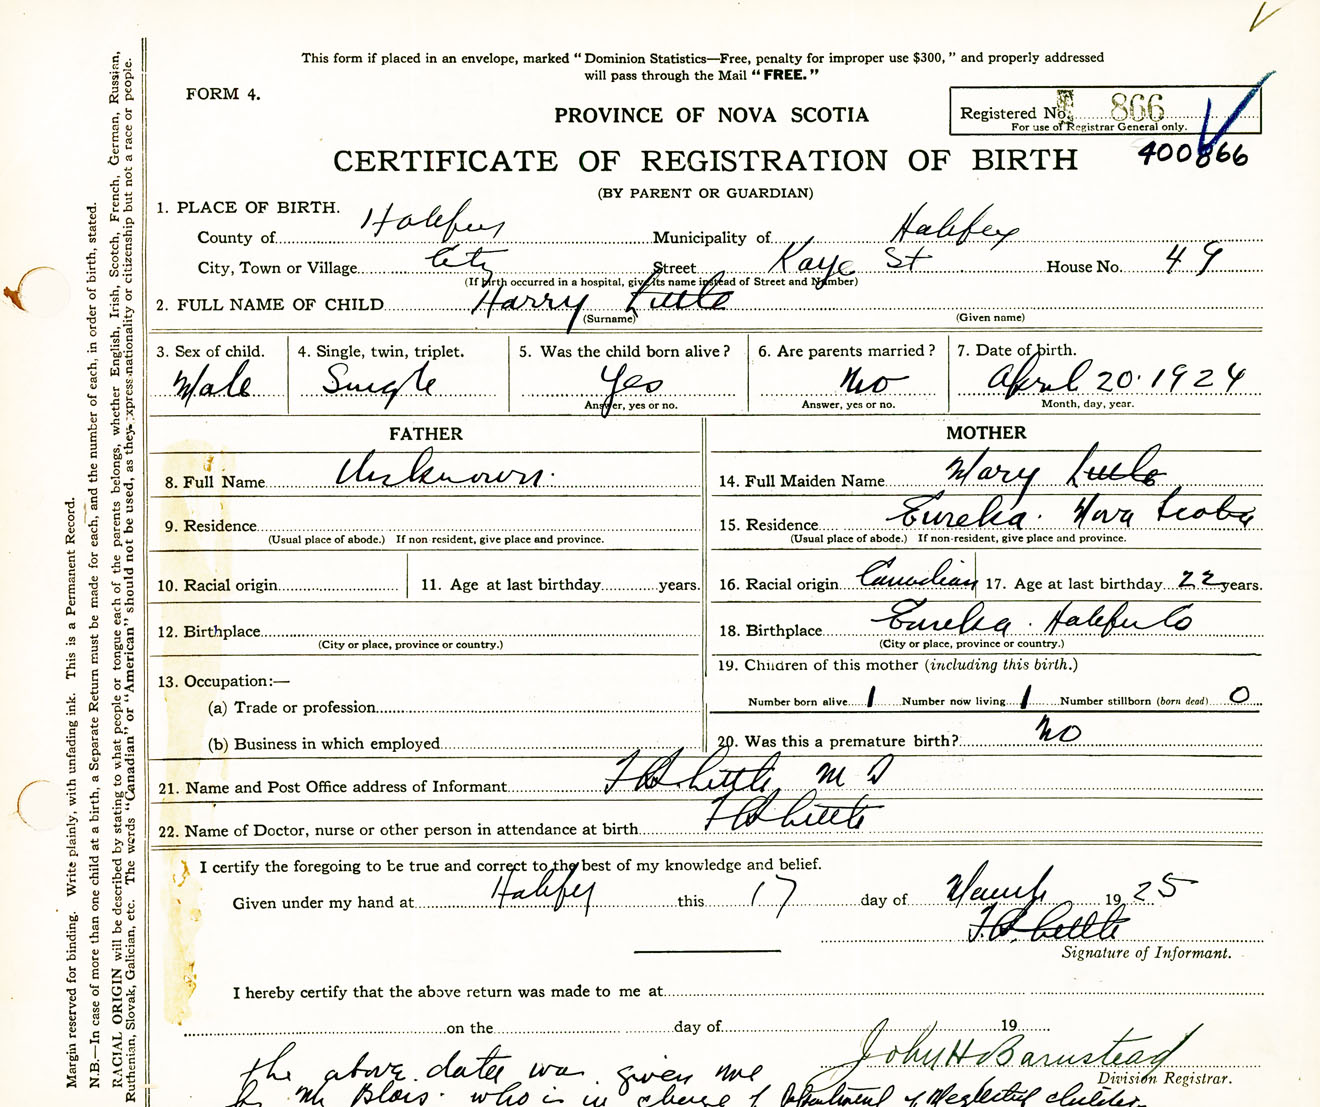 This form if placed in an envelope, marked "Dominion Statistics—Free, penalty for improper use $300," and properly addressed
will pass through the Mail "FREE."
FORM 4.
PROVINCE OF NOVA SCOTIA
Registered No. 866
For use of Registrar General only.
CERTIFICATE OF REGISTRATION OF BIRTH
400866
(BY PARENT OR GUARDIAN)
1. PLACE OF BIRTH.
County of Halifax Municipality of Halifax
City, Town or Village City Street Kaye St House No. 49
(If birth occurred in a hospital, give its name instead of Street and Number)
2. FULL NAME OF CHILD Harry Little
(Surname) (Given name)
3. Sex of child. 4. Single, twin, triplet. 5. Was the child born alive? 6. Are parents married? 7. Date of birth.
Male Single Yes No April 20. 1924
Answer, yes or no. Answer, yes or no. Month, day, year.
FATHER MOTHER
8. Full Name Unknown. 14. Full Maiden Name Mary Little
9. Residence 15. Residence Eureka. Nova Scotia
(Usual place of abode.) If non-resident, give place and province. (Usual place of abode.) If non-resident, give place and province.
10. Racial origin 11. Age at last birthday years. 16. Racial origin Canadian 17. Age at last birthday 22 years.
12. Birthplace 18. Birthplace Eureka. Halifax Co
(City or place, province or country.) (City or place, province or country.)
13. Occupation:— 19. Children of this mother (including this birth.)
(a) Trade or profession Number born alive 1 Number now living 1 Number stillborn (born dead) 0
(b) Business in which employed 20. Was this a premature birth? No
21. Name and Post Office address of Informant Little M D
22. Name of Doctor, nurse or other person in attendance at birth Little
I certify the foregoing to be true and correct to the best of my knowledge and belief.
Given under my hand at Halifax this 17 day of March 1925
Little
Signature of Informant.
I hereby certify that the above return was made to me at
on the day of 19
John H Barnstead
Division Registrar.
the above date was given me
by Mr Blois. who is in charge of Department of Neglected children
Margin reserved for binding. Write plainly, with unfading ink. This is a Permanent Record.
N.B.—In case of more than one child at a birth, a Separate Return must be made for each, and the number of each, in order of birth, stated.
RACIAL ORIGIN will be described by stating to what people or tongue each of the parents belongs, whether English, Irish, Scotch, French, German, Russian,
Ruthenian, Slovak, Galician, etc. The words "Canadian" or "American" should not be used, as they express nationality or citizenship but not a race or people.